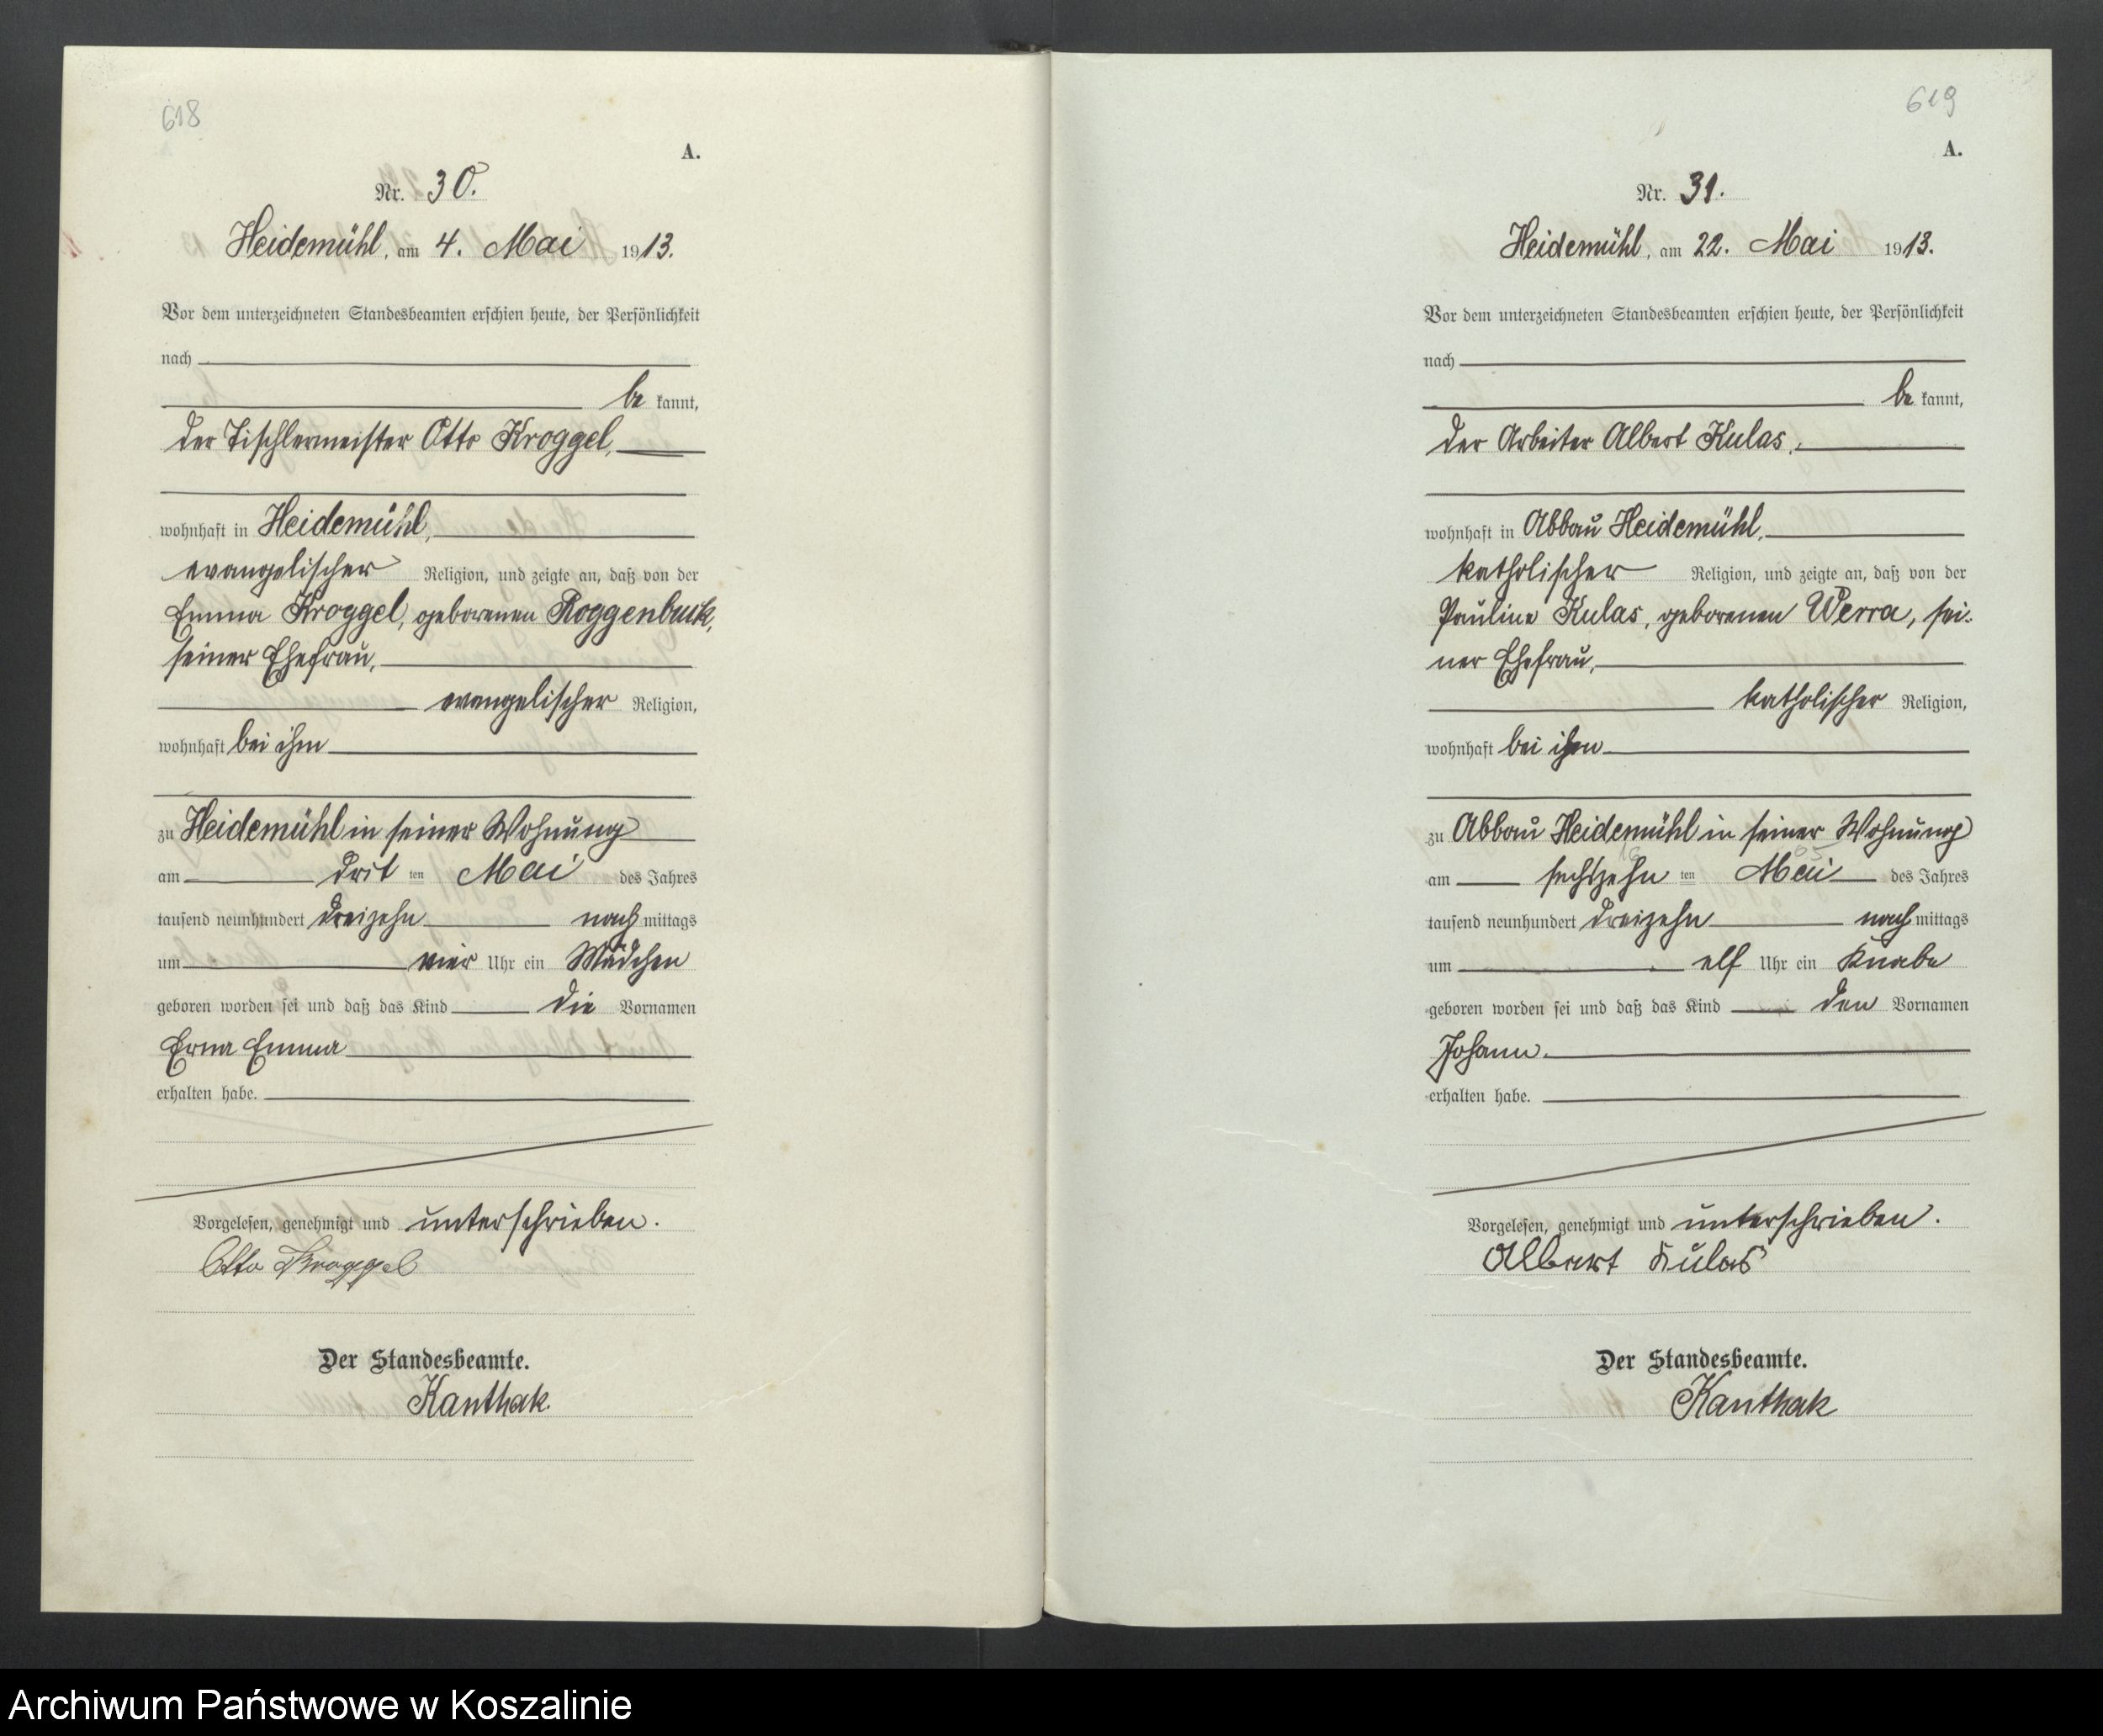 618
A.
Nr. 30.
Heidemühl, am 4. Mai 1913.
Vor dem unterzeichneten Standesbeamten erschien heute, der Persönlichkeit
nach
be kannt,
der Tischlermeister Otto Kroggel,
wohnhaft in Heidemühl,
evangelischer Religion, und zeigte an, daß von der
Emma Kroggel, geborenen Roggenbuck,
seiner Ehefrau,
evangelischer Religion,
wohnhaft bei ihm
zu Heidemühl in seiner Wohnung
am drit ten Mai des Jahres
tausend neunhundert dreizehn nach mittags
um vier Uhr ein Mädchen
geboren worden sei und daß das Kind die Vornamen
Erna Emma
erhalten habe.
Vorgelesen, genehmigt und unterschrieben.
Otto Kroggel
Der Standesbeamte.
Kanthak.
619
A.
Nr. 31.
Heidemühl, am 22. Mai 1913.
Vor dem unterzeichneten Standesbeamten erschien heute, der Persönlichkeit
nach
be kannt,
der Arbeiter Albert Kulas,
wohnhaft in Abbau Heidemühl,
katholischer Religion, und zeigte an, daß von der
Pauline Kulas, geborenen Werra, sei-
ner Ehefrau,
katholischer Religion,
wohnhaft bei ihm
zu Abbau Heidemühl in seiner Wohnung
16 05
am sechszehn ten Mai des Jahres
tausend neunhundert dreizehn nach mittags
um elf Uhr ein Knabe
geboren worden sei und daß das Kind den Vornamen
Johann.
erhalten habe.
Vorgelesen, genehmigt und unterschrieben.
Albert Kulas
Der Standesbeamte.
Kanthak
Archiwum Państwowe w Koszalinie